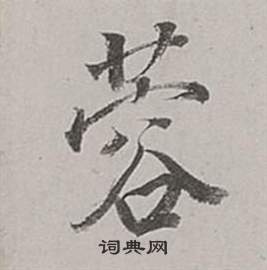 蓉
词典网